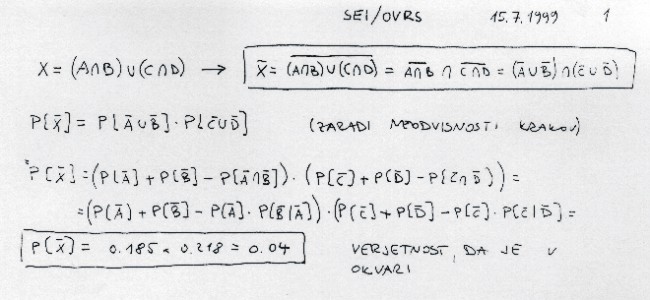 SEI/OVRS 15.7.1999 1
X = (A∩B) ∪ (C∩D) → X̄ = \overline{(A∩B)∪(C∩D)} = \overline{A∩B} ∩ \overline{C∩D} = (Ā∪B̄) ∩ (C̄∪D̄)
P[X̄] = P[Ā∪B̄] · P[C̄∪D̄] (ZARADI NEODVISNOSTI KRAKOV)
P[X̄] = (P[Ā] + P[B̄] - P[Ā∩B̄]) · (P[C̄] + P[D̄] - P[C̄∩D̄]) =
= (P[Ā] + P[B̄] - P[Ā] · P[B̄|Ā]) · (P[C̄] + P[D̄] - P[C̄] · P[C̄|D̄] =
P[X̄] = 0.185 * 0.218 = 0.04 VERJETNOST, DA JE V
OKVARI